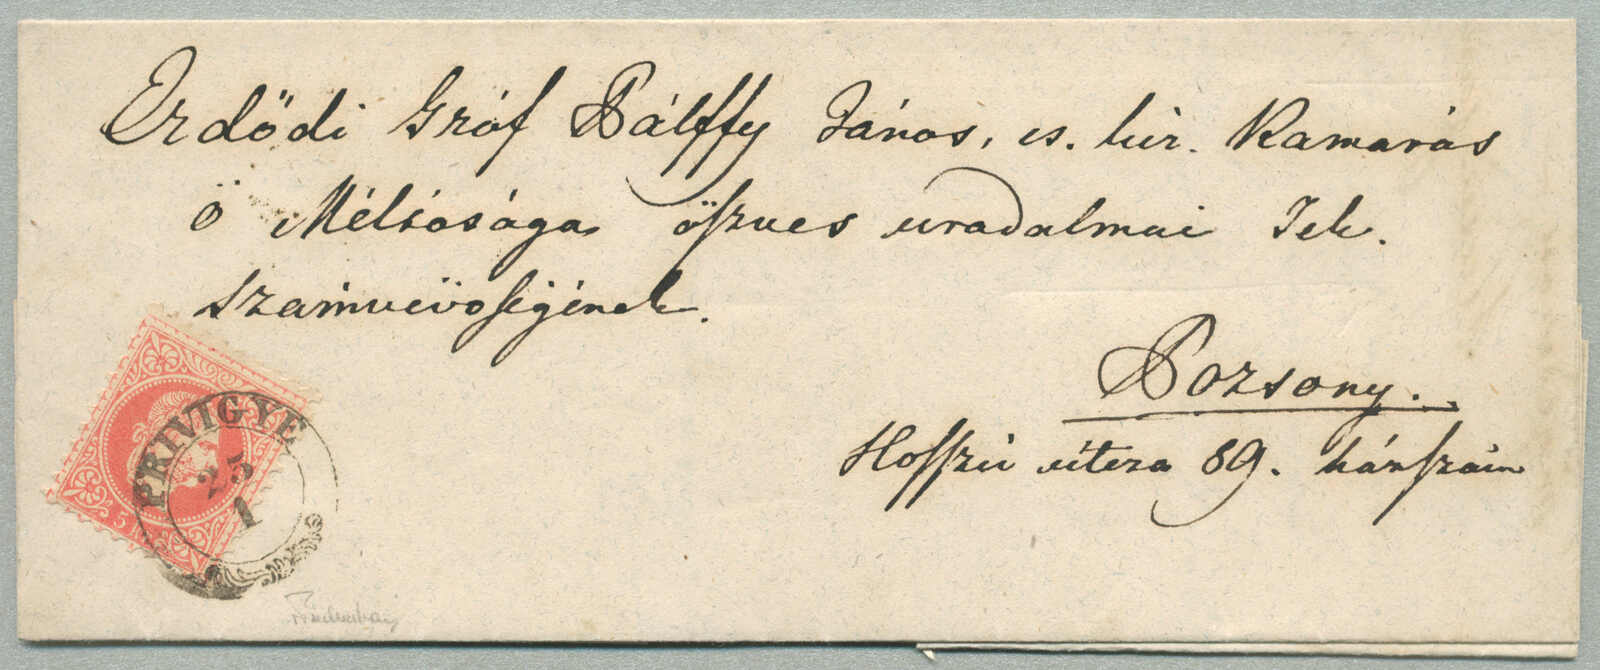 Erdődi Gróf Pálffy János, cs. kir. Kamarás
Ő Méltósága öszves uradalmai Tek.
számvevőségének.
Pozsony.
Hosszú útcza 89. házszám
PRIVIGYE
25
1
5